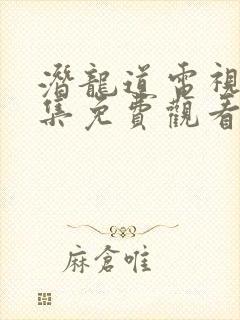 潛龍道電視
集免費觀看
麻倉唯